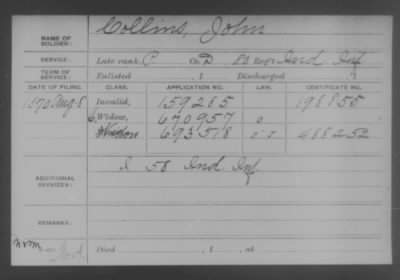 NAME OF SOLDIER: Collins, John
SERVICE: Late rank, P. Co. D. 80 Reg't Ind Inf
TERM OF SERVICE: Enlisted , 1 Discharged , 1
DATE OF FILING. CLASS. APPLICATION NO. LAW. CERTIFICATE NO.
1870 Aug. 8 Invalid, 159285 198855
Widow, 670957 0
693518 488252
ADDITIONAL SERVICES: I 58 Ind. Inf.
REMARKS:
Died , 1 , at